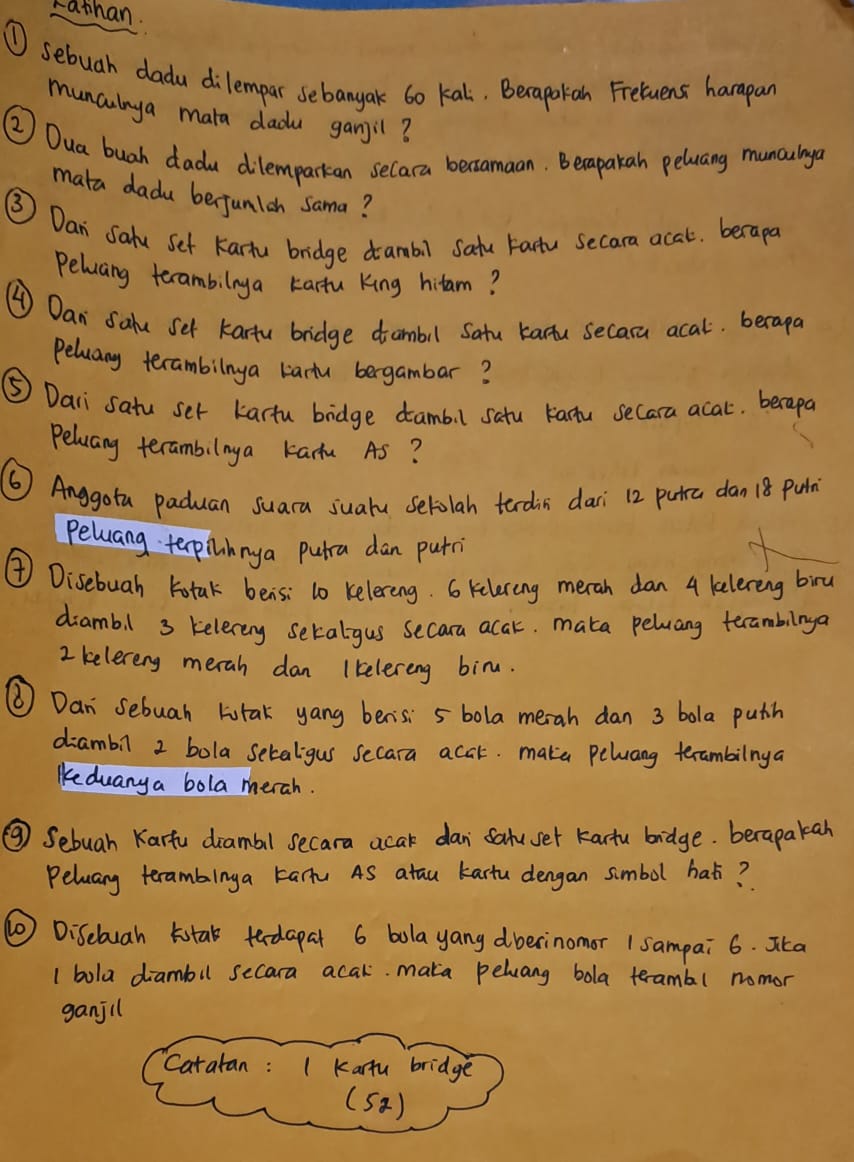 Latihan.
① Sebuah dadu dilempar sebanyak 60 kali. Berapakah Frekuensi harapan
munculnya mata dadu ganjil ?
② Dua buah dadu dilemparkan secara bersamaan. Berapakah peluang munculnya
mata dadu berjumlah sama ?
③ Dari satu set kartu bridge diambil satu kartu secara acak. berapa
Peluang terambilnya kartu King hitam ?
④ Dari satu set kartu bridge diambil satu kartu secara acak. berapa
Peluang terambilnya kartu bergambar ?
⑤ Dari satu set kartu bridge diambil satu kartu secara acak. berapa
Peluang terambilnya kartu AS ?
⑥ Anggota paduan suara suatu sekolah terdiri dari 12 putra dan 18 putri
Peluang terpilihnya putra dan putri
⑦ Disebuah kotak berisi 10 kelereng. 6 kelereng merah dan 4 kelereng biru
diambil 3 kelereng sekaligus secara acak. maka peluang terambilnya
2 kelereng merah dan 1 kelereng biru.
⑧ Dari sebuah kotak yang berisi 5 bola merah dan 3 bola putih
diambil 2 bola sekaligus secara acak. maka peluang terambilnya
keduanya bola merah.
⑨ Sebuah Kartu diambil secara acak dari satu set kartu bridge. berapakah
Peluang terambilnya kartu AS atau kartu dengan simbol hati ?
⑩ Disebuah kotak terdapat 6 bola yang diberi nomor 1 sampai 6. Jika
1 bola diambil secara acak. maka peluang bola terambil nomor
ganjil
Catatan : 1 kartu bridge
(52)